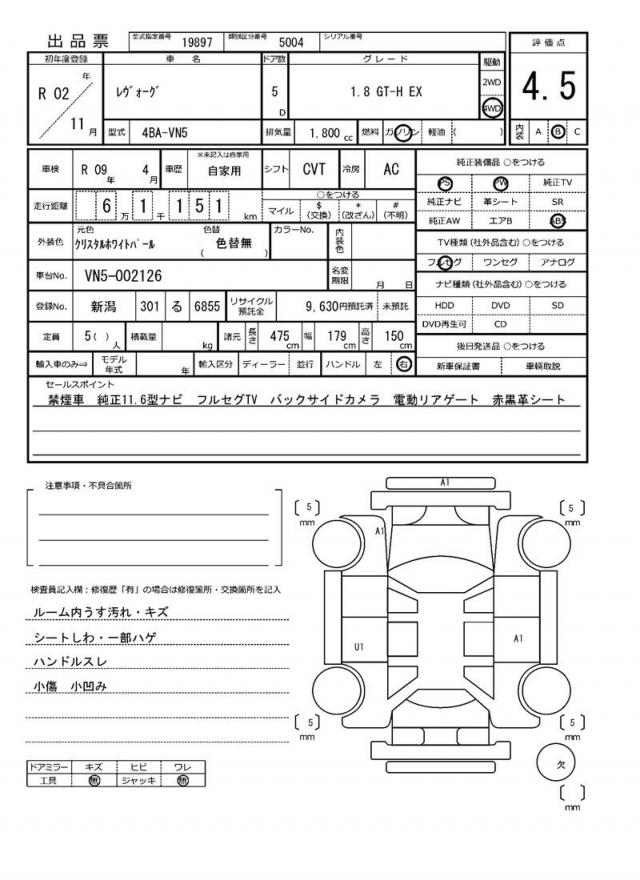 出品票 型式指定番号 19897 類別区分番号 5004 シリアル番号
初年度登録 車 名 ドア数 グレード 駆動 評価点
R 02 年 11 月 レヴォーグ 5 D 1.8 GT-H EX 2WD 4WD 4.5
型式 4BA-VN5 排気量 1.800 cc 燃料 ガソリン 軽油 ( ) 内装 A B C
車検 R 09 年 4 月 車歴 ※未記入は自家用 自家用 シフト CVT 冷房 AC
純正装備品 ○をつける
PS PW 純正TV
純正ナビ 革シート SR
純正AW エアB ABS
走行距離 6 万 1 千 1 5 1 km ○をつける
マイル $ (交換) * (改ざん) # (不明)
外装色 元色 クリスタルホワイトパール 色替 ( 色替無 ) カラーNo. 内装色
TV種類 (社外品含む) ○をつける
フルセグ ワンセグ アナログ
車台No. VN5-002126 名変期限 月 日
ナビ種類 (社外品含む) ○をつける
登録No. 新潟 301 る 6855 リサイクル預託金 9,630円預託済 未預託
HDD DVD SD
DVD再生可 CD
定員 5( ) 人 積載量 kg 諸元 長さ 475 cm 幅 179 cm 高さ 150 cm
後日発送品 ○をつける
輸入車のみ⇒ モデル年式 年 輸入区分 ディーラー 並行 ハンドル 左 右
新車保証書 車輌取説
セールスポイント
禁煙車 純正11.6型ナビ フルセグTV バックサイドカメラ 電動リアゲート 赤黒革シート
注意事項・不具合箇所
検査員記入欄：修復歴「有」の場合は修復箇所・交換箇所を記入
ルーム内うす汚れ・キズ
シートしわ・一部ハゲ
ハンドルスレ
小傷 小凹み
ドアミラー キズ ヒビ ワレ
工具 無 ジャッキ 無
A1
[ 5 ] mm [ 5 ] mm
A1
U1 A1
[ 5 ] mm [ 5 ] mm
欠
[ ] mm